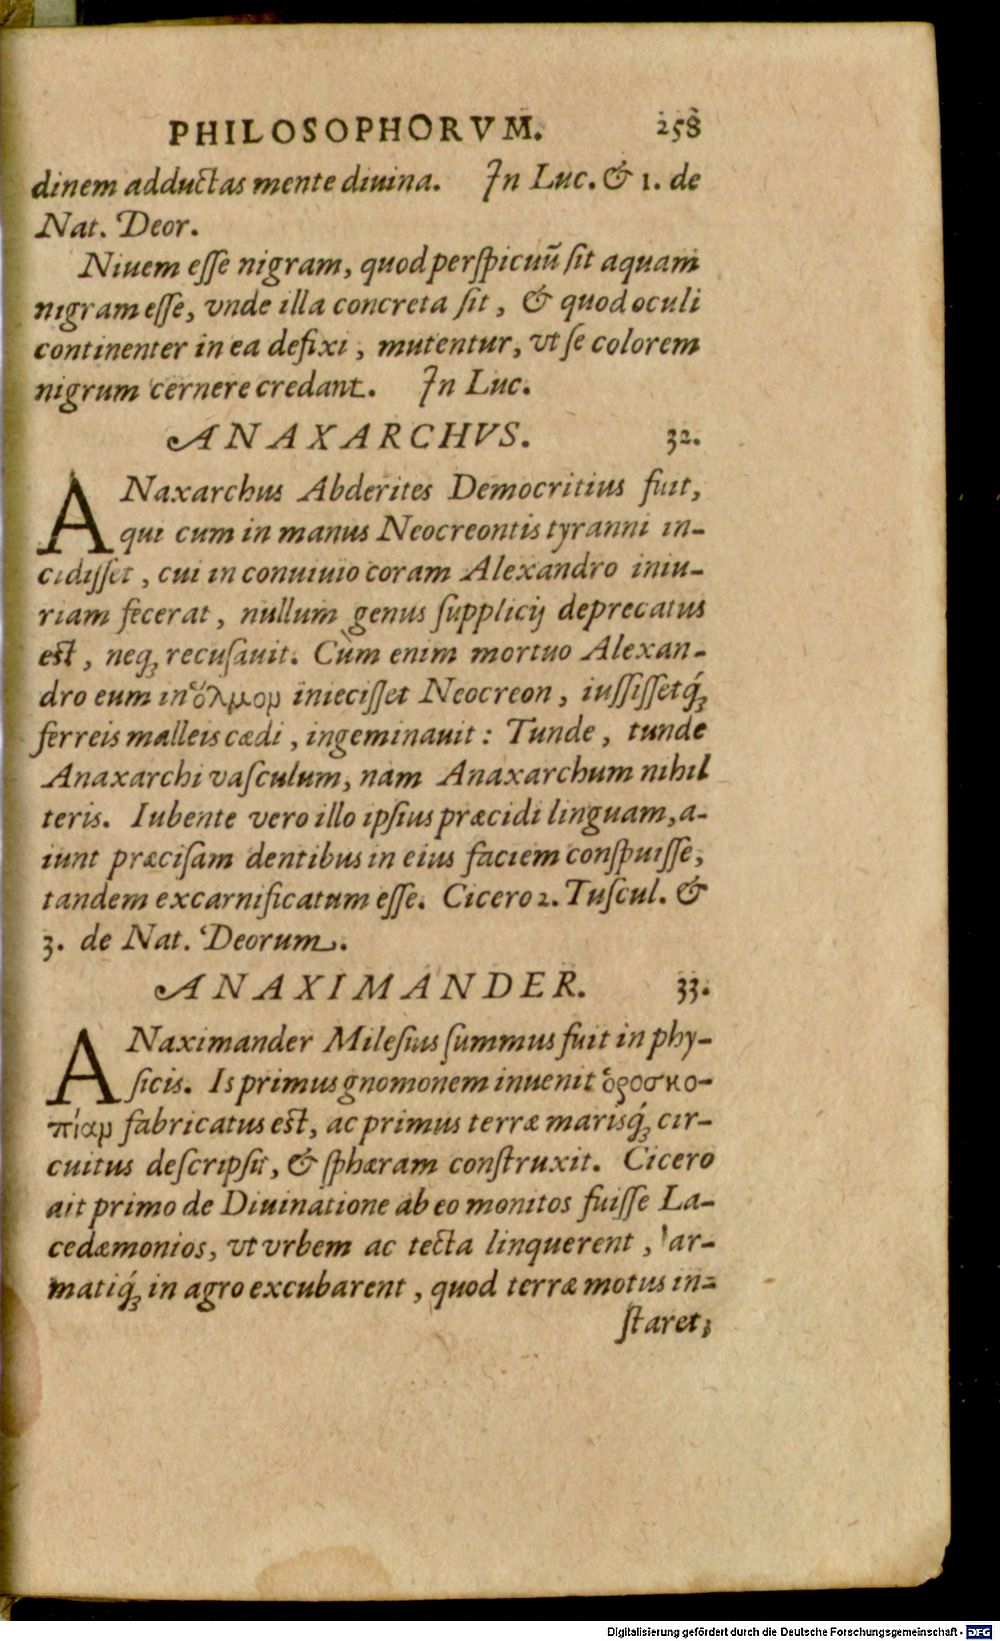 PHILOSOPHORVM. 258
dinem adductas mente diuina. In Luc. & 1. de
Nat. Deor.
Niuem eſſe nigram, quod perſpicuũ ſit aquam
nigram eſſe, vnde illa concreta ſit, & quod oculi
continenter in ea defixi, mutentur, vt ſe colorem
nigrum cernere credant. In Luc.
ANAXARCHVS. 32.
ANaxarchus Abderites Democritius fuit,
qui cum in manus Neocreontis tyranni in-
cidiſſet, cui in conuiuio coram Alexandro iniu-
riam fecerat, nullum genus ſupplicij deprecatus
eſt, neq; recuſauit. Cùm enim mortuo Alexan-
dro eum in ὅλμον inieciſſet Neocreon, iuſſiſſetq́;
ferreis malleis cædi, ingeminauit: Tunde, tunde
Anaxarchi vaſculum, nam Anaxarchum nihil
teris. Iubente vero illo ipſius præcidi linguam, a-
iunt præciſam dentibus in eius faciem conſpuiſſe,
tandem excarnificatum eſſe. Cicero 2. Tuſcul. &
3. de Nat. Deorum.
ANAXIMANDER. 33.
ANaximander Mileſius ſummus fuit in phy-
ſicis. Is primus gnomonem inuenit ὁροσκο-
πίαν fabricatus eſt, ac primus terræ marisq́; cir-
cuitus deſcripſit, & ſphæram conſtruxit. Cicero
ait primo de Diuinatione ab eo monitos fuiſſe La-
cedæmonios, vt vrbem ac tecta linquerent, ar-
matiq́; in agro excubarent, quod terræ motus in-
ſtaret;
Digitalisierung gefördert durch die Deutsche Forschungsgemeinschaft - DFG